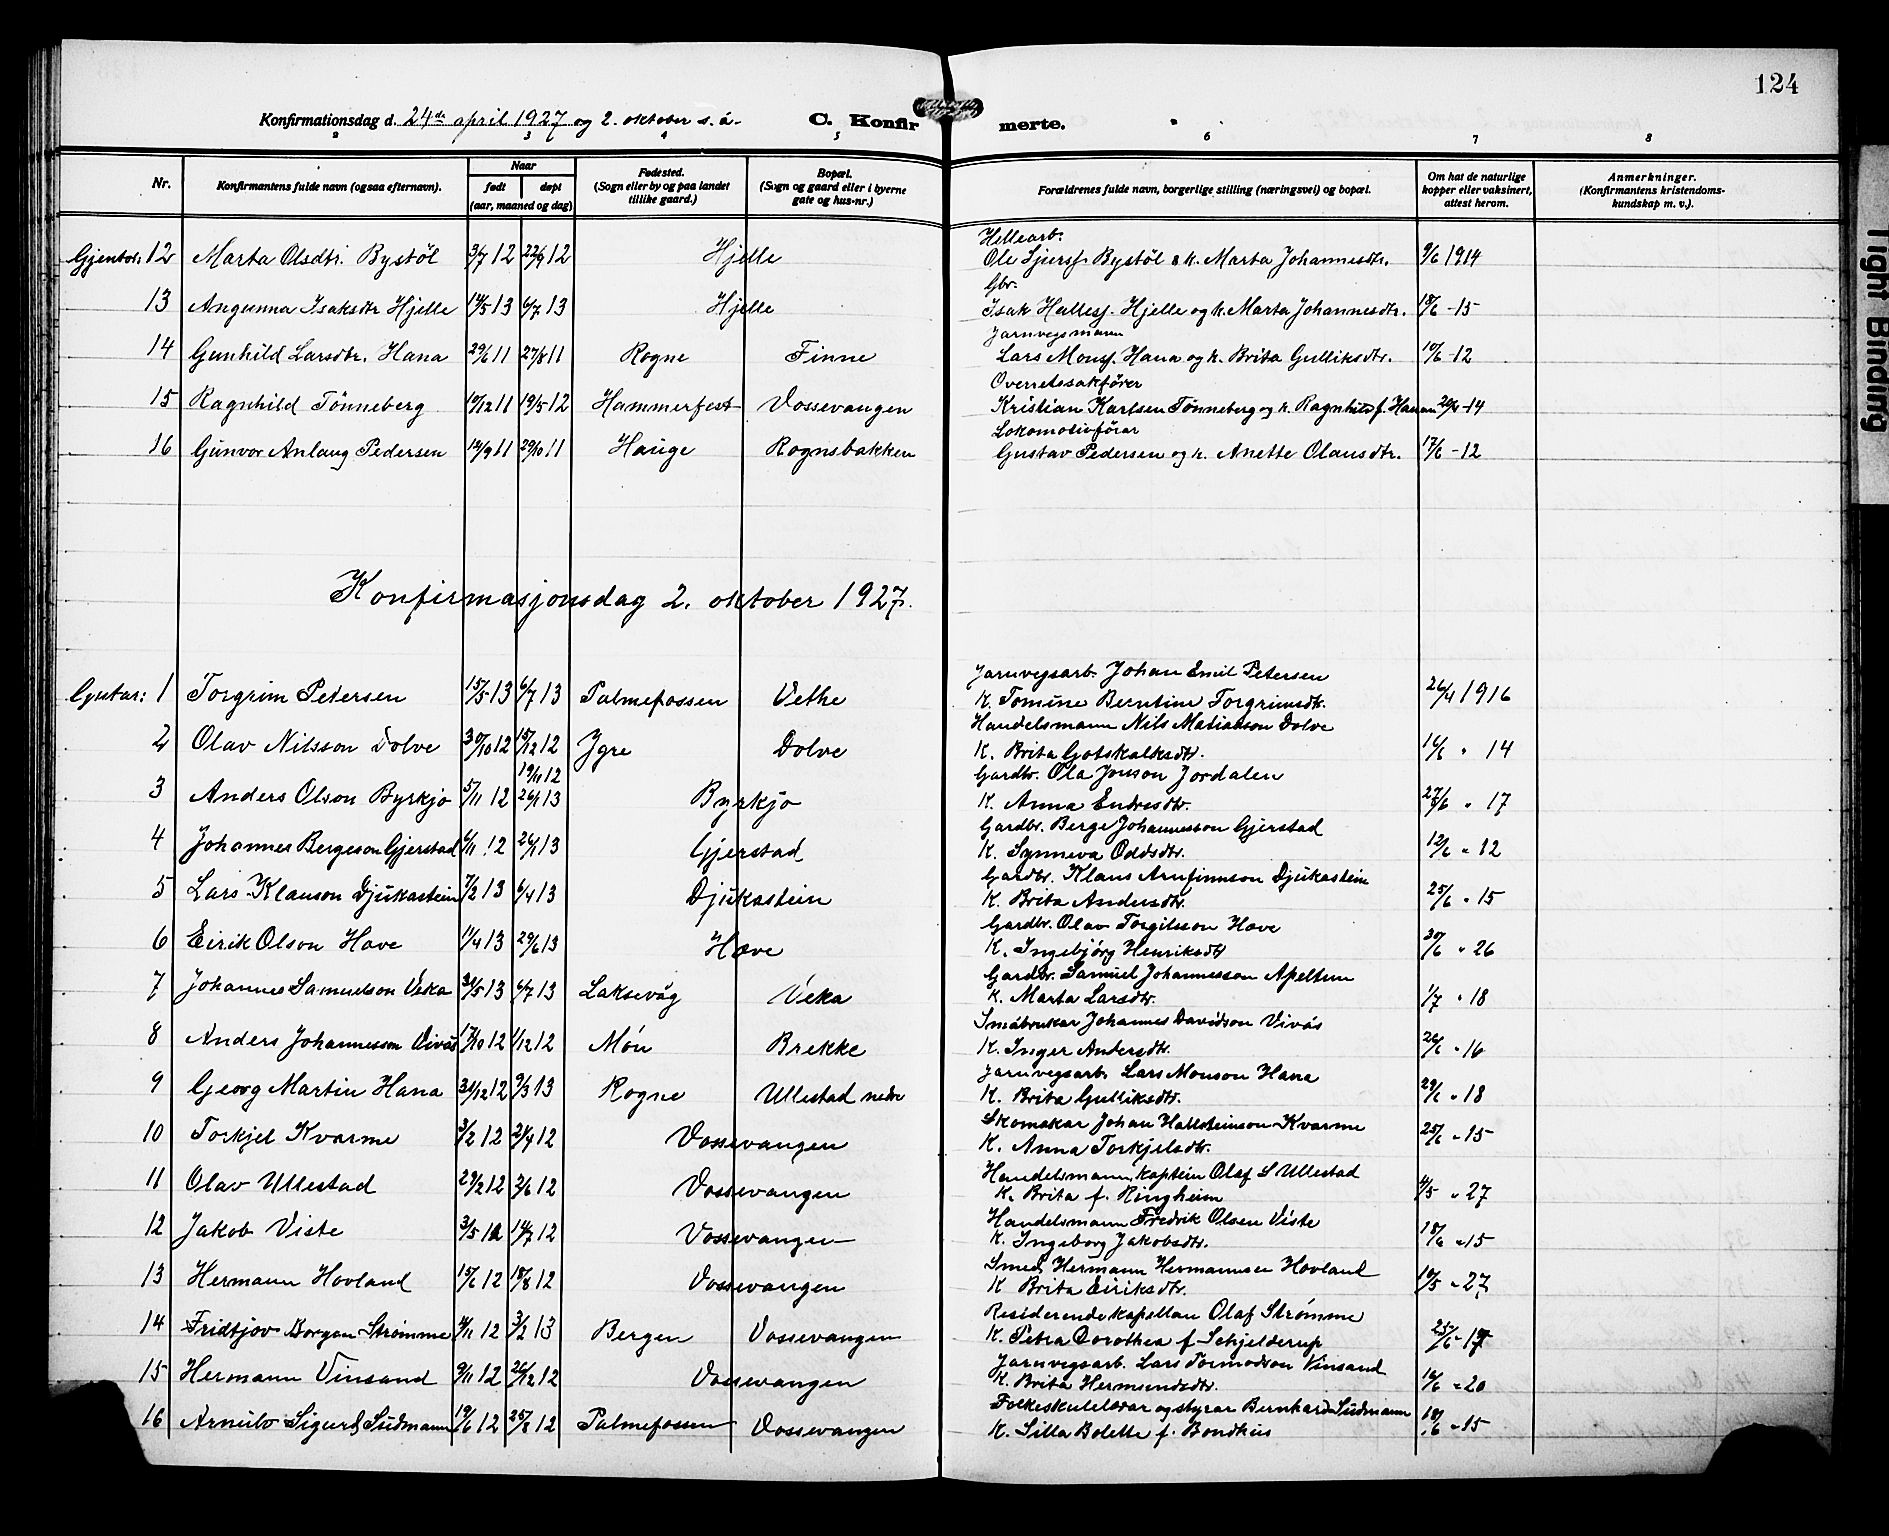 124
Konfirmationsdag d. 24de april 1927 og 2. oktober s. å. C. Konfir merte.
2 3 4 5 6 7 8
Nr. Konfirmantens fulde navn (ogsaa efternavn). Naar født døpt (aar, maaned og dag) Fødested. (Sogn eller by og paa landet tillike gaard.) Bopæl. (Sogn og gaard eller i byerne gate og hus-nr.) Forældrenes fulde navn, borgerlige stilling (næringsvei) og bopæl. Om hat de naturlige kopper eller vaksinert, attest herom. Anmerkninger. (Konfirmantens kristendomskundskap m. v.).
Hellearb.
Gjentor: 12 Marta Olsdtr. Bystöl 3/7 12 22/9 12 Hjelle Ole Sjurss. Bystöl & k. Marta Johannesdtr. 9/6 1914
Gbr.
13 Angunna Isaksdtr Hjelle 14/5 13 6/7 13 Hjelle Isak Halless. Hjelle og k. Marta Johannesdtr. 18/6 -15
Jarnvegsmann
14 Gunhild Larsdtr. Hana 29/6 11 27/8 11 Rogne Finne Lars Monss. Hana og k. Brita Gulliksdtr. 10/6 -12
Overretssakförer
15 Ragnhild Tönneberg 19/12 11 19/5 12 Hammerfest Vossevangen Kristian Karlsen Tönneberg og k. Ragnhild f. 20/6 -14
Lokomotivförar
16 Gunvor Anlaug Pedersen 14/9 11 29/10 11 Hauge Rognsbakken Gustav Pedersen og k. Anette Olausdtr. 17/6 -12
Konfirmasjonsdag 2. oktober 1927.
Jarnvegsarb. Johan Emil Petersen
Gutar: 1 Torgrim Petersen 15/5 13 6/7 13 Palmefossen Vethe K. Tomine Berntine Torgrimsdtr. 26/4 1916
Handelsmann Nils Matiasson Dolve
2 Olav Nilsson Dolve 30/10 12 15/12 12 Ygre Dolve K. Brita Gotskalksdtr. 16/6 " 14
19/11 12 Gardbr. Ola Jonson Jordalen
3 Anders Olson Byrkjo 5/11 12 26/1 13 Byrkjo K. Anna Endresdtr. 27/6 " 17
Gardbr. Berge Johannesson Gjerstad
4 Johannes Bergeson Gjerstad 6/11 12 26/1 13 Gjerstad K. Synneva Oddsdtr. 12/6 " 12
Gardbr. Klaus Arnfinnson Djukastein
5 Lars Klauson Djukastein 7/2 13 6/4 13 Djukastein K. Brita Andersdtr. 25/6 " 15
Gardbr. Olav Torgilsson Hove
6 Eirik Olson Hove 11/4 13 29/6 13 Hove K. Ingebjörg Henriksdtr 30/6 " 26
Gardbr. Samuel Johannesson Apeltun
7 Johannes Samuelson Veka 31/5 13 6/7 13 Laksevåg Veka K. Marta Larsdtr. 1/7 " 18
Småbrukar Johannes Davidson Vivås
8 Anders Johannesson Vivås 17/10 12 1/12 12 Món Brekke K. Inger Andersdtr. 26/6 " 16
Jarnvegsarb. Lars Monson Hana
9 Georg Martin Hana 31/12 12 9/3 13 Rogne Ullestad nedre K. Brita Gulliksdtr. 29/6 " 18
Skomakar Johan Hallsteinson Kvarme
10 Torkjel Kvarme 3/2 12 21/4 12 Vossevangen K. Anna Torkjelsdtr. 25/6 " 15
Handelsmann, kaptein Olaf S Ullestad
11 Olav Ullestad 29/2 12 2/6 12 Vossevangen K. Brita f. Ringheim 4/5 " 27
Handelsmann Fredrik Olsen Viste
12 Jakob Viste 3/5 12 14/7 12 Vossevangen K. Ingeborg Jakobsdtr. 18/6 " 15
Smed Hermann Hermannsen Hovland
13 Hermann Hovland 15/6 12 18/8 12 Vossevangen K Brita Eiriksdtr. 10/5 " 27
Residerende kapellan Olaf Strømme
14 Fridtjov Borgen Strømme 4/11 12 3/2 13 Bergen Vossevangen K. Petra Dorothea f. Schjelderup 25/6 - 17
Jarnvegsarb. Lars Tormodson Vinsand
15 Hermann Vinsand 9/11 12 26/12 12 Vossevangen K. Brita Hermundsdtr. 16/6 " 20
Folkeskulelærar og styrar Bernhard Sudmann
16 Arnulv Sigurd Sudmann 19/6 12 25/8 12 Palmefossen Vossevangen K. Silla Bolette f. Bondhus 18/6 " 15
Tight Binding